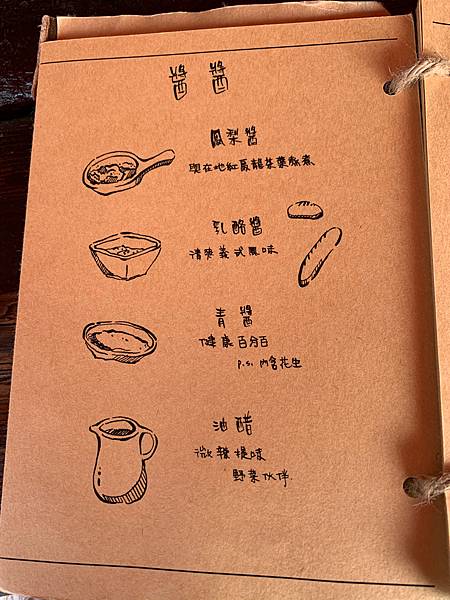 醬醬
鳳梨醬
與在地紅烏龍茶葉熬煮
乳酪醬
清爽義式風味
青醬
健康百分百
p.s. 內含花生
油醋
微辣提味
野菜伙伴